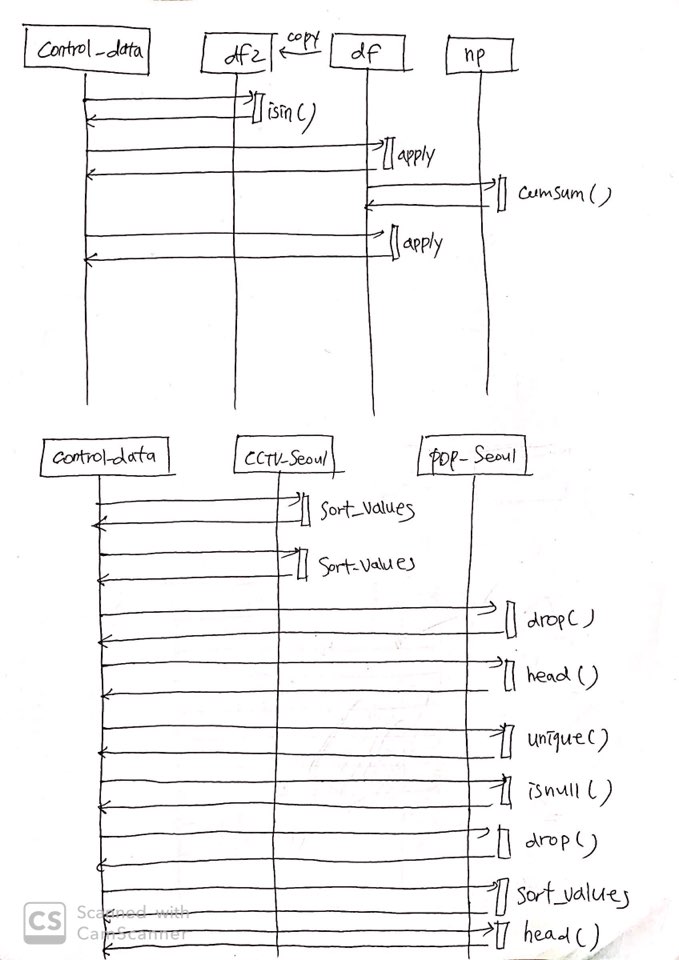 Control_data df2 copy df np
isin()
apply
cumsum()
apply
control-data CCTV-Seoul POP-Seoul
sort_values
sort-values
drop()
head()
unique()
isnull()
drop()
sort_values
head()
CS Scanned with
CamScanner